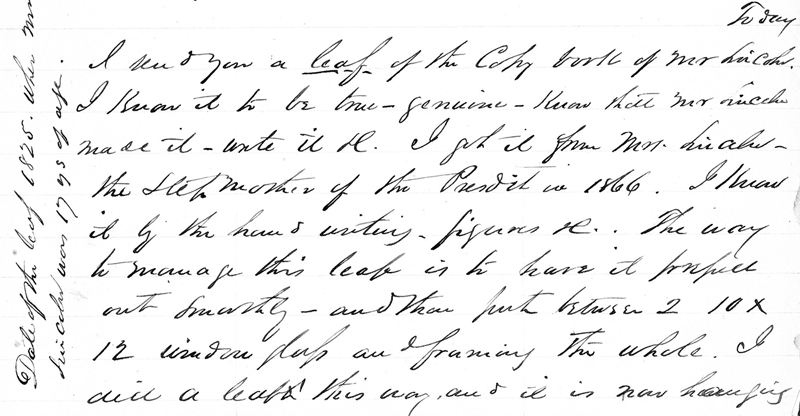 Today
I send you a leaf of the Copy book of Mr Lincoln.
I Know it to be true - genuine - Know that Mr Lincoln
made it - wrote it &c. I got it from Mrs. Lincoln -
the Step Mother of the Presdt in 1866. I Know
it by the hand writing - figures &c.. The way
to manage this leaf is to have it pressed
out smoothly - and then put between 2 10 x
12 window glass and framing the whole. I
did a leaf this way, and it is now hanging
Date of the leaf 1825. when Mr
Lincoln was 17 ys of age.